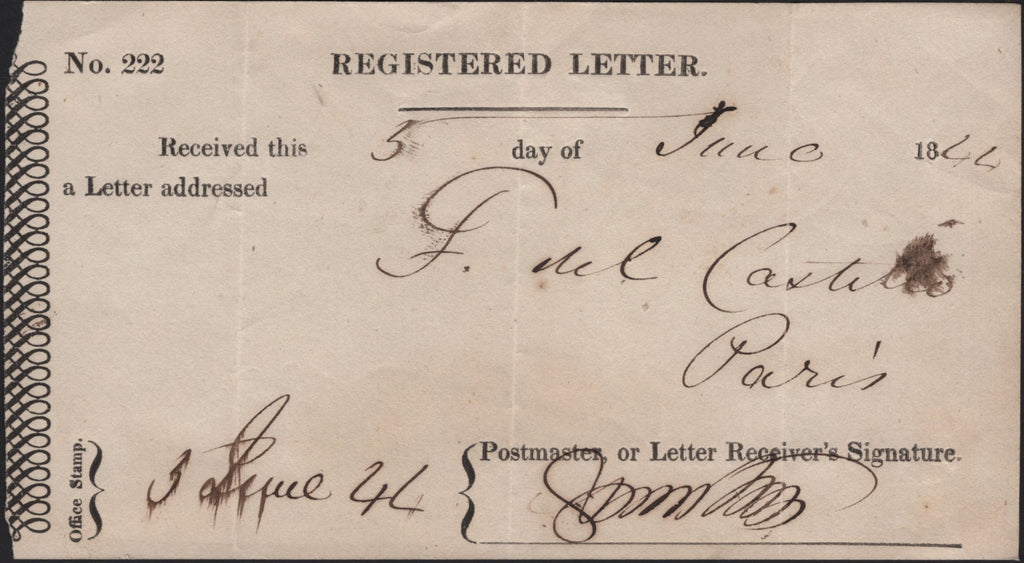 No. 222
REGISTERED LETTER.
Received this 5 day of June 1844
a Letter addressed
F. del Castillo
Paris
Office Stamp.
5 June 44
Postmaster, or Letter Receiver's Signature.